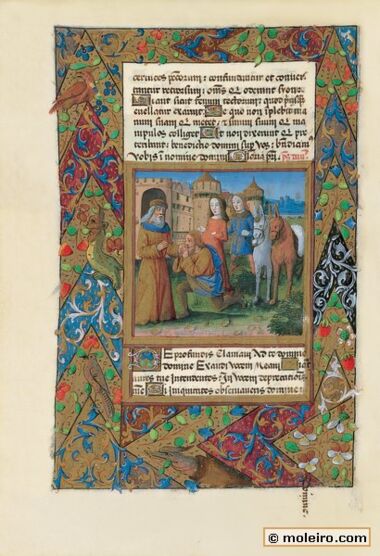 cervices peccatorum: confundantur et conver
tantur retrorsum: omnes qui oderunt syon
Fiant sicut fenum tectorum: quod priusquam
evellatur exaruit: De quo non implebit ma
num suam qui metet: et sinum suum qui ma
nipulos colliget Et non dixerunt qui pre
teribant: benedictio domini super vos: benedixim9
vobis in nomine domini Gloria patri
De profundis Clamavi Ad te domine
domine Exaudi Vocem Meam Fiant
aures tue Intendentes In Vocem deprecationis
mee Si iniquitates observaveris domine:
© moleiro.com